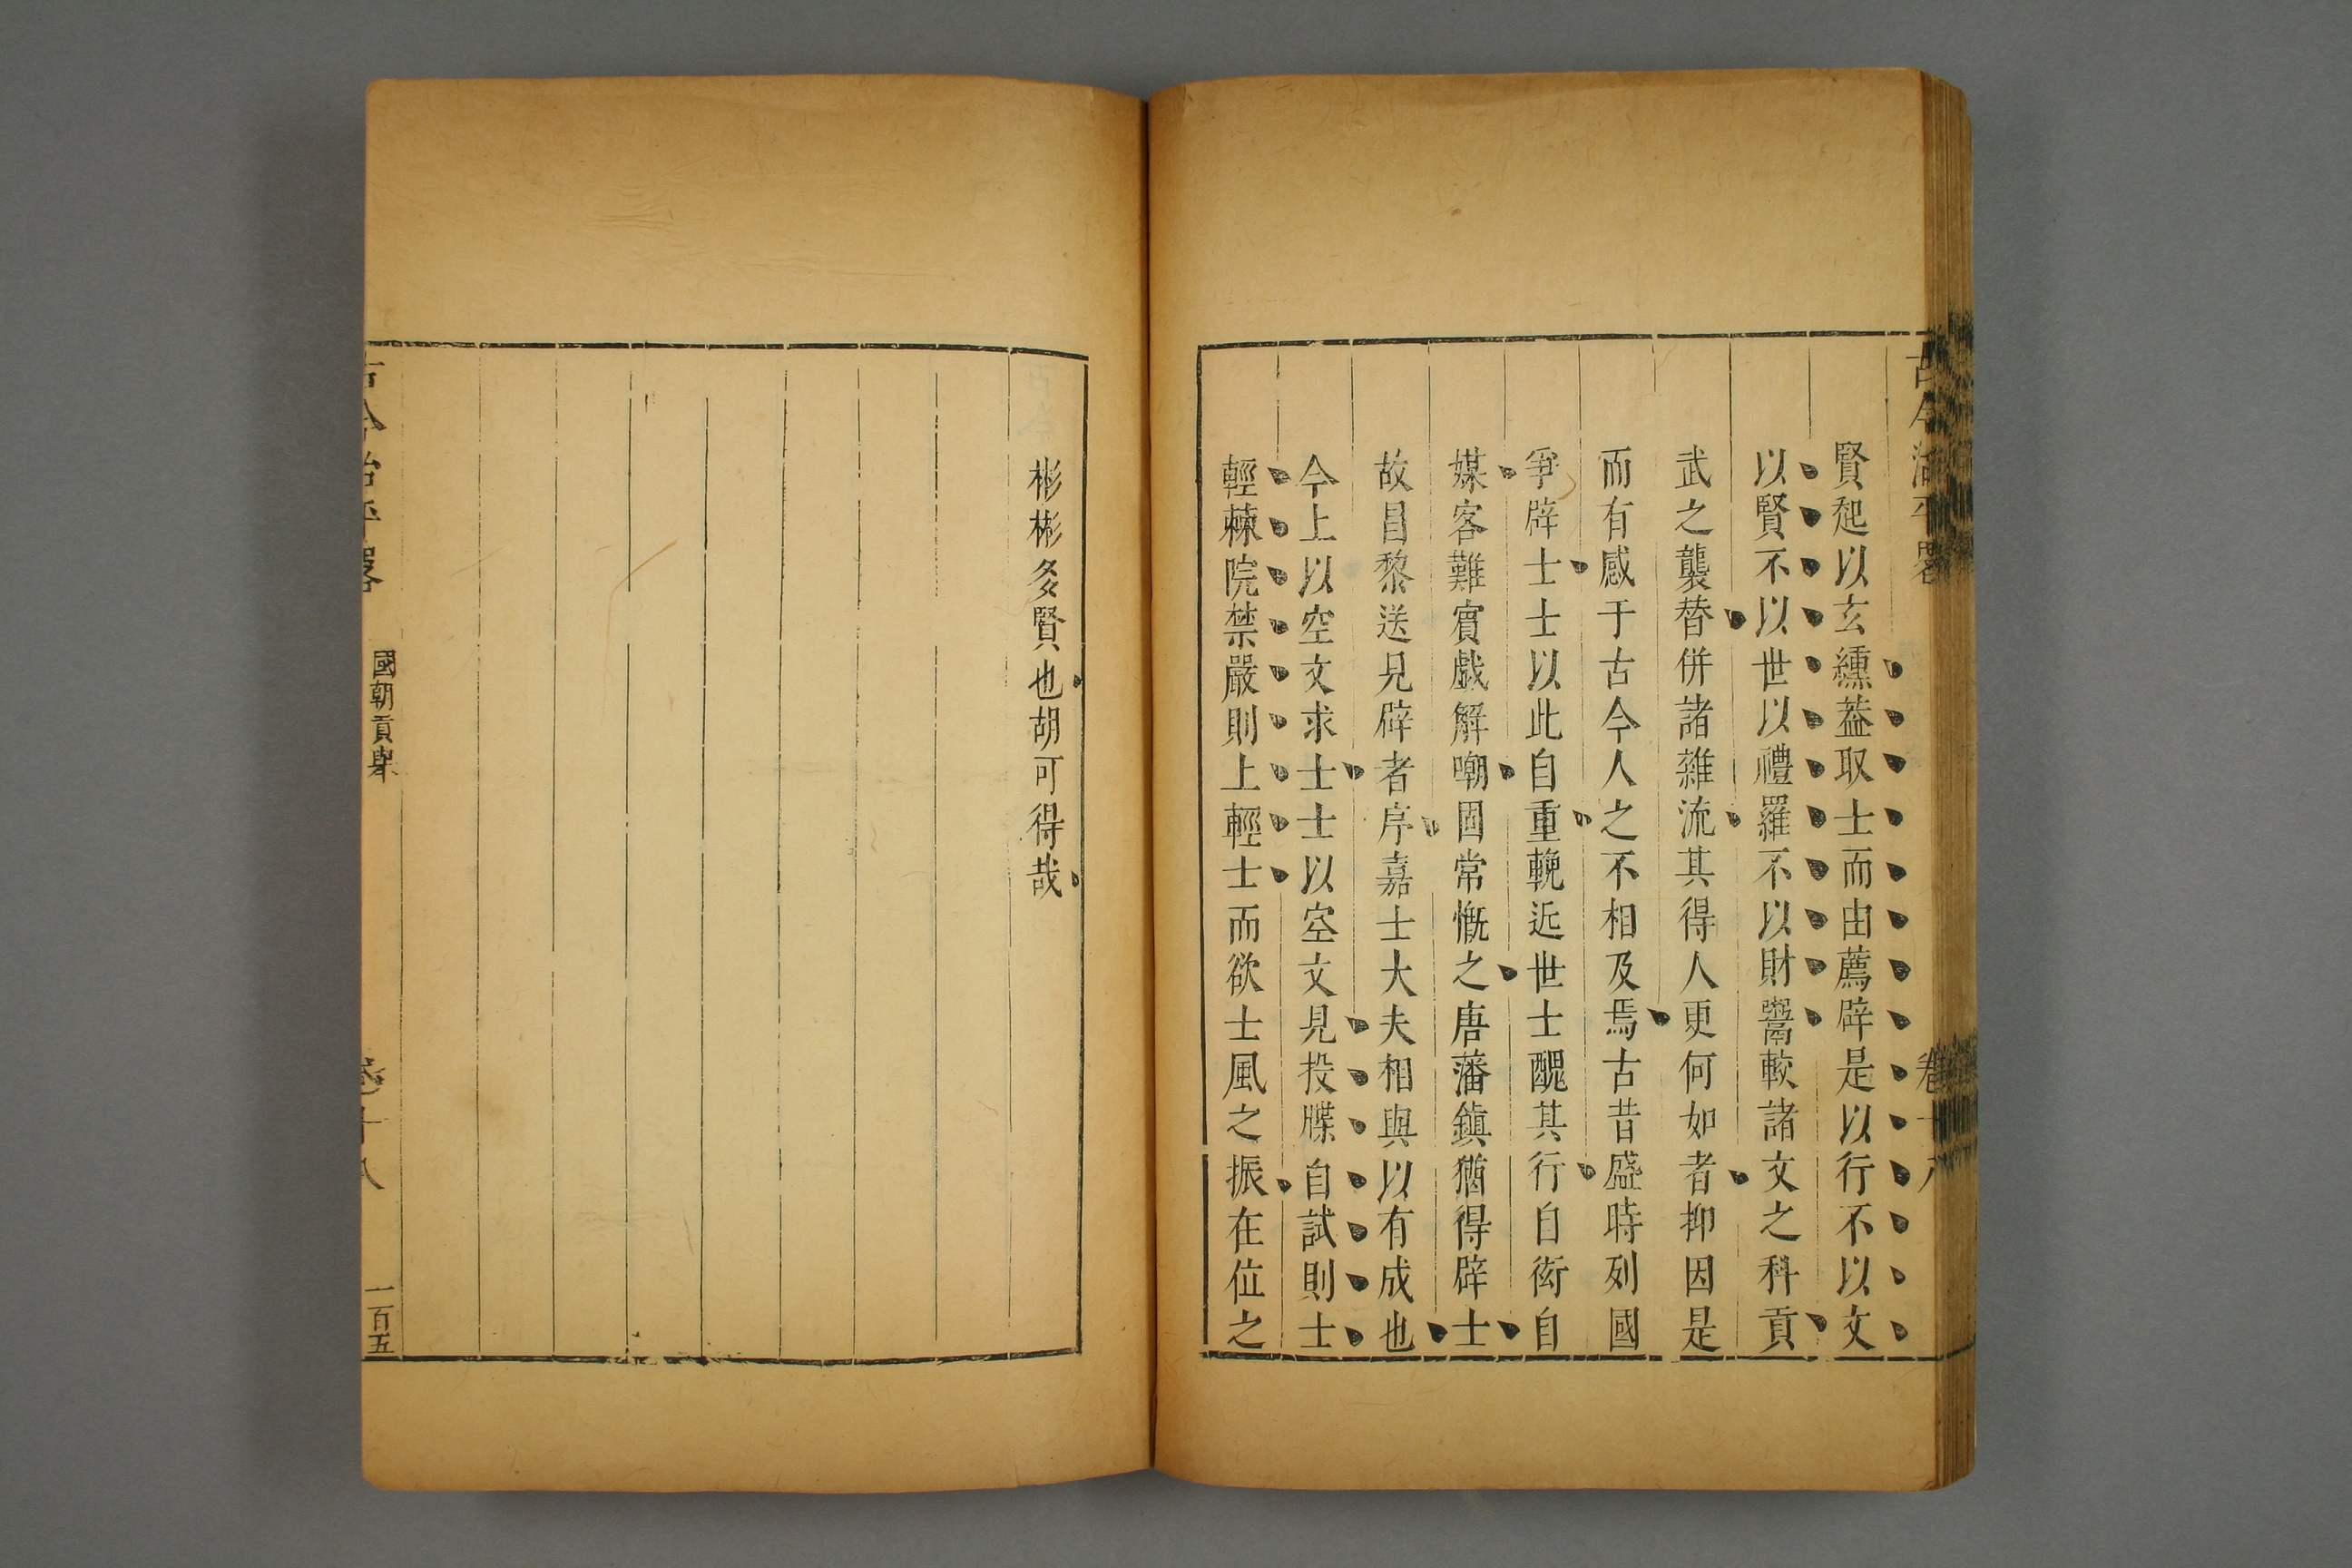 古今治平畧 卷十八
賢起以玄纁蓋取士而由薦辟是以行不以文
以賢不以世以禮羅不以財鬻較諸文之科貢
武之襲替併諸雜流其得人更何如者抑因是
而有感于古今人之不相及焉古昔盛時列國
爭辟士士以此自重輓近世士醜其行自衒自
媒客難賓戲解嘲固常慨之唐藩鎮猶得辟士
故昌黎送見辟者序嘉士大夫相與以有成也
今上以空文求士士以空文見投牒自試則士
輕棘院禁嚴則上輕士而欲士風之振在位之
彬彬多賢也胡可得哉
古今治平畧 國朝貢舉 卷十八 一百五